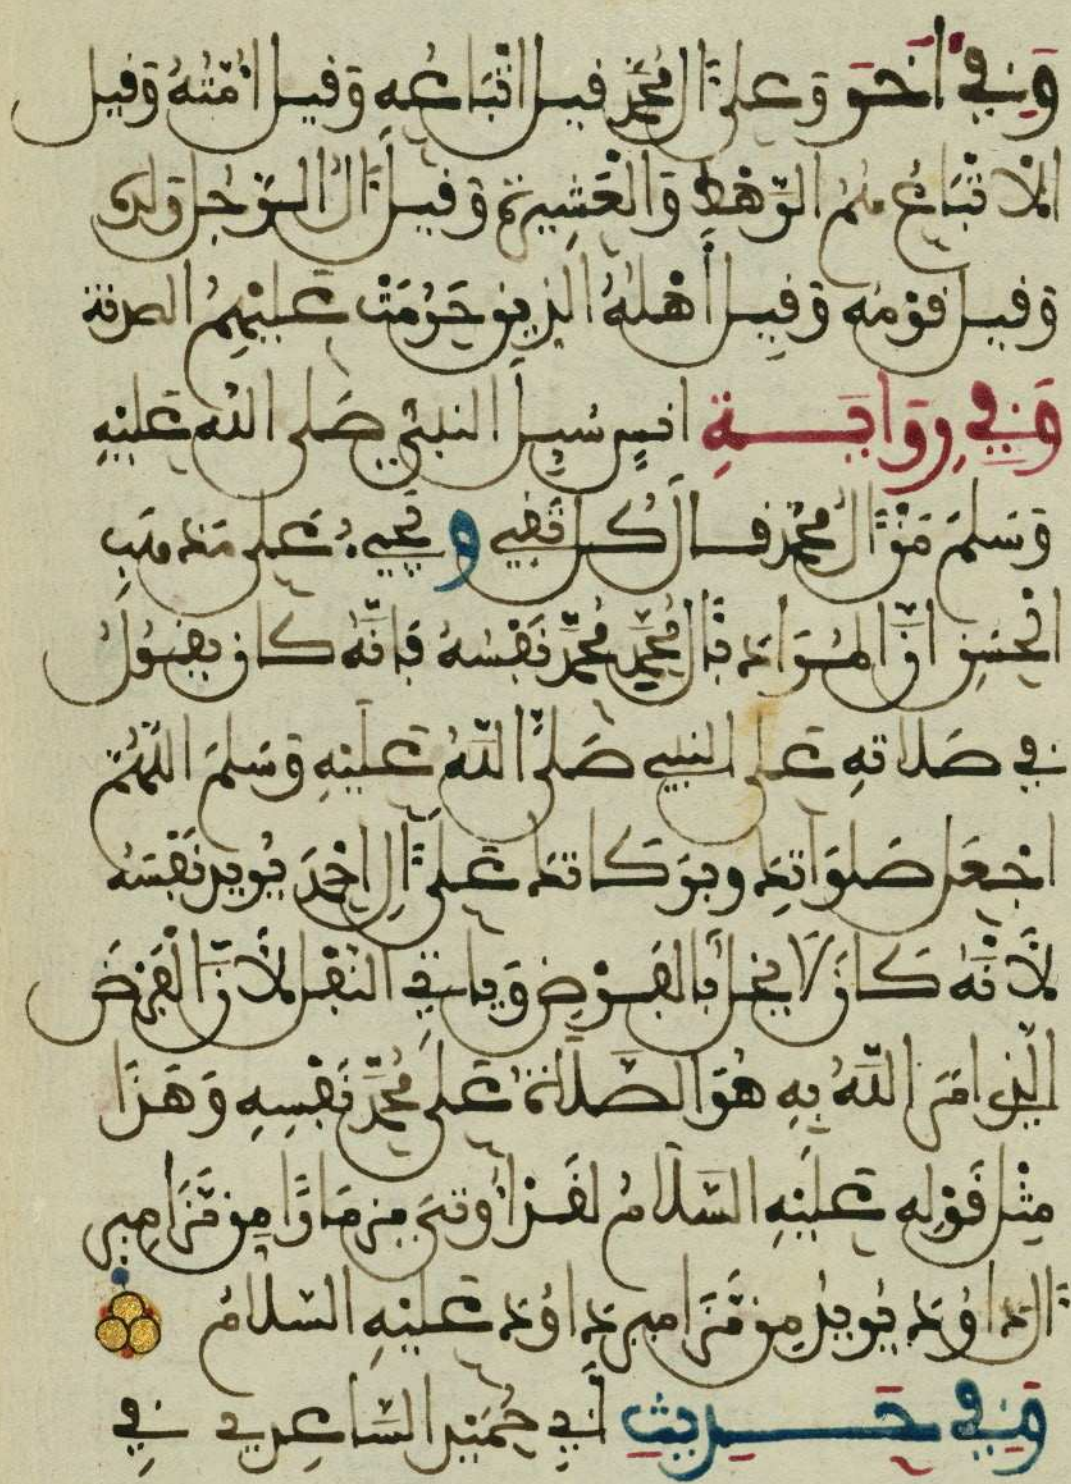 وَفِي أُخْرَى وَعَلَى آلِ مُحَمَّدٍ قِيلَ اتْبَاعُهُ وَقِيلَ أُمَّتُهُ وَقِيلَ
الْاتْبَاعُ مِنْهُمُ الرَّهْطُ وَالْعَشِيرَةُ وَقِيلَ آلُ الرَّجُلِ وَلَدُهُ
وَقِيلَ قَوْمُهُ وَقِيلَ أَهْلُهُ الَّذِينَ حُرِّمَتْ عَلَيْهِمُ الصدقة
وَفِي رِوَايَةِ انسٍ سُئِلَ النَّبِيُّ صَلَّى اللَّهُ عَلَيْهِ
وَسَلَّمَ مَنْ آلُ مُحَمَّدٍ قَالَ كُلُّ تَقِيٍّ وَيَجِيءُ عَلَى مَذْهَبِ
الْحَسَنِ انَّ الْمُرَادَ بِآلِ مُحَمَّدٍ مُحَمَّدٌ نَفْسُهُ فَإِنَّهُ كَانَ يَقُولُ
فِي صَلَاتِهِ عَلَى النَّبِيِّ صَلَّى اللَّهُ عَلَيْهِ وَسَلَّمَ اللَّهُمَّ
اجْعَلْ صَلَوَاتِكَ وَبَرَكَاتِكَ عَلَى آلِ أَحْمَدَ يُرِيدُ نَفْسَهُ
لِأَنَّهُ كَانَ لَا يُخِلُّ بِالْفَرْضِ وَيَاتِي النَّفْلَ لِأَنَّ الْفَرْضَ
الَّذِي امَرَ اللَّهُ بِهِ هُوَ الصَّلَاةُ عَلَى مُحَمَّدٍ نَفْسِهِ وَهَذَا
مِثْلُ قَوْلِهِ عَلَيْهِ السَّلَامُ لَقَدْ أُوتِيَ مِزْمَارًا مِنْ مَزَامِيرِ
آلِ دَاوُدَ يُرِيدُ مِنْ مَزَامِيرِ دَاوُدَ عَلَيْهِ السَّلَامُ
وَفِي حَدِيثِ أَبِي حُمَيْدٍ السَّاعِدِيِّ فِي